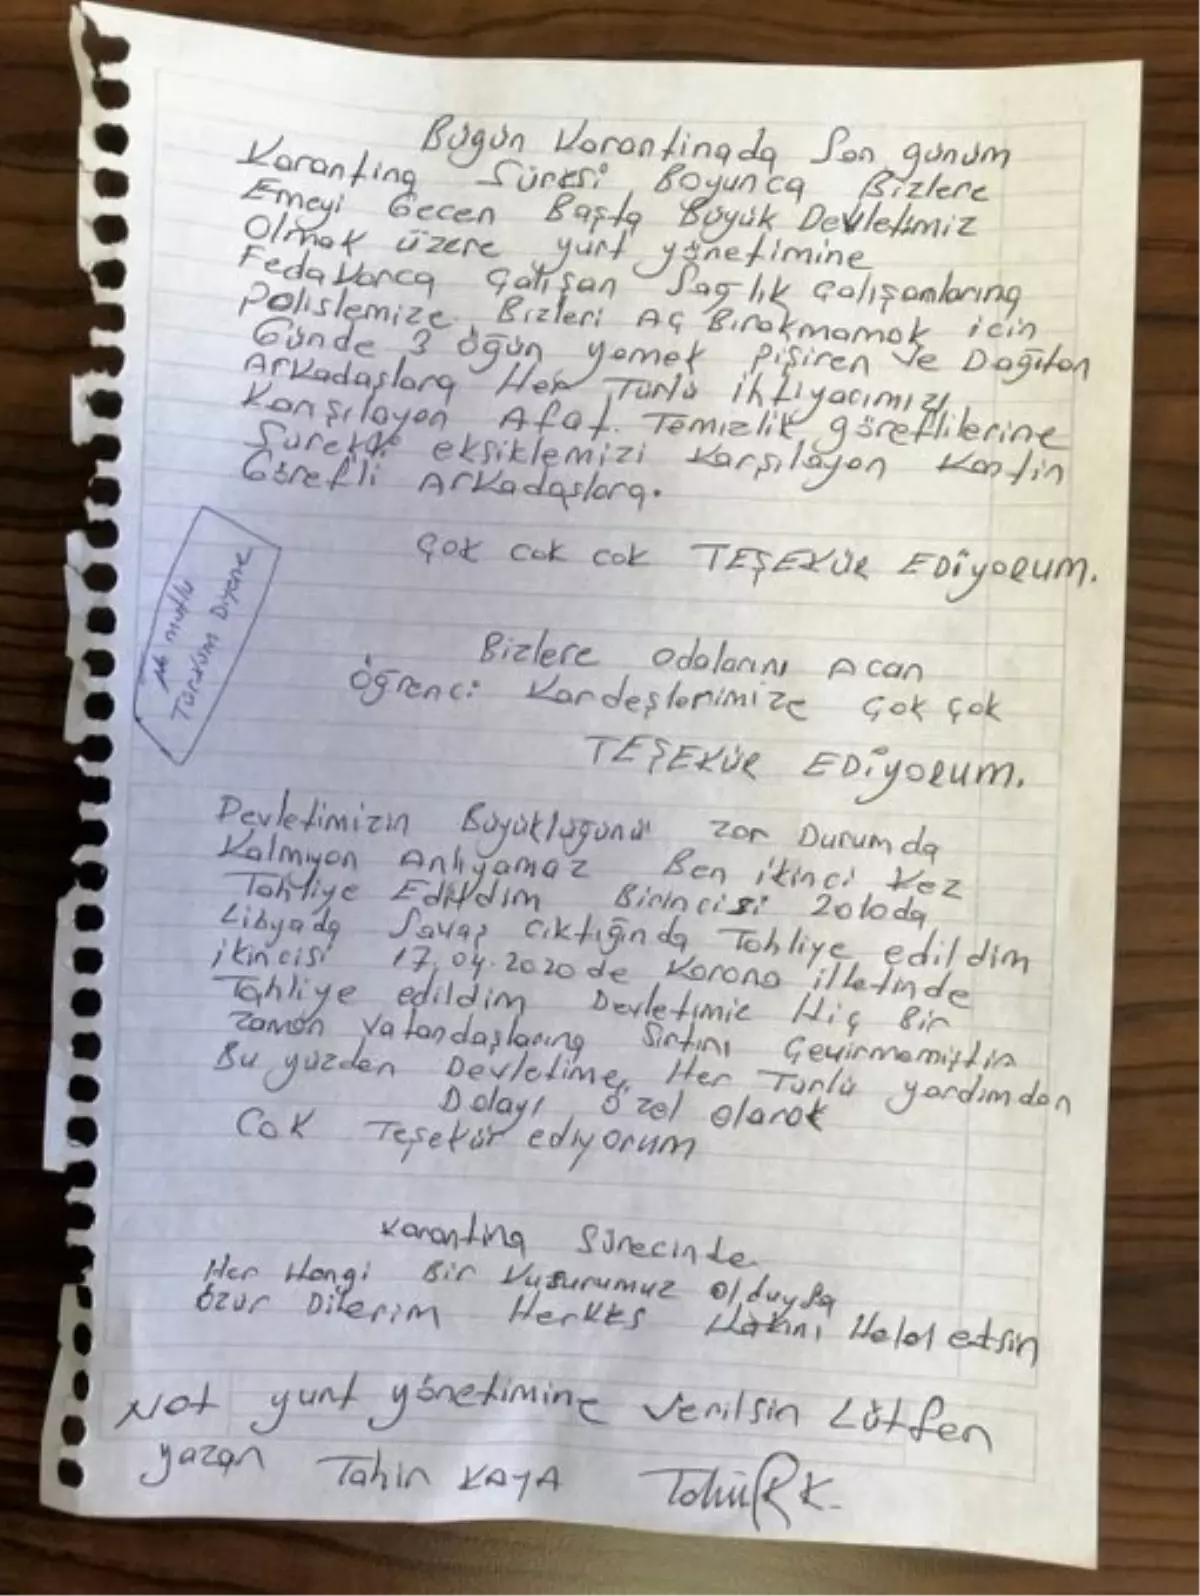 Bugün Karantinada Son günüm
Karantina Süresi Boyunca Bizlere
Emeyi Gecen Başta Büyük Devletimiz
Olmak üzere yurt yönetimine
Fedakarca Çalışan Sağlık Çalışanlarına
Polislemize. Bizleri Aç Bırakmamak icin
Günde 3 öğün yemek Pişiren ve Dağıtan
Arkadaşlara Her Türlü ihtiyacımızı
Karşılayan Afat. Temizlik görеflilerine
Sürekli eksiklemizi Karşılayan Kantin
Görefli Arkadaşlara.
Çok cok cok TEŞEKÜR EDİYORUM.
Ne mutlu
Türküm Diyene
Bizlere odalarını Acan
Öğrenci Kardeşlerimize Çok Çok
TEŞEKÜR EDİYORUM.
Devletimizin Büyüklüğünü zor Durumda
Kalmıyan Anlıyamaz Ben ikinci Kez
Tahliye Edildim Birincisi 2010da
Libyada Savaş Cıktığında Tahliye edildim
ikincisi 17.04.2020 de Korona illetinde
Tahliye edildim Devletimiz Hiç Bir
zaman Vatandaşlarına Sırtını Çevirmemiştir
Bu yüzden Devletime, Her Türlü yardımdan
Dolayı özel olarak
Cok Teşekür ediyorum
Karantina Sürecinde
Her Hangi Bir Kusurumuz olduysa
özür Dilerim Herkes Hakını Helal etsin
Not yurt yönetimine Verilsin Lütfen
yazan Tahir KAYA